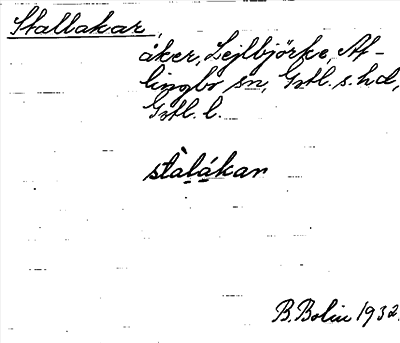 Stallakar,
åker, Lejlbjörke, Af-
lingbo sn, Gotl. s. hd,
Gotl. l.
stàlákar
B. Bolin 1932.